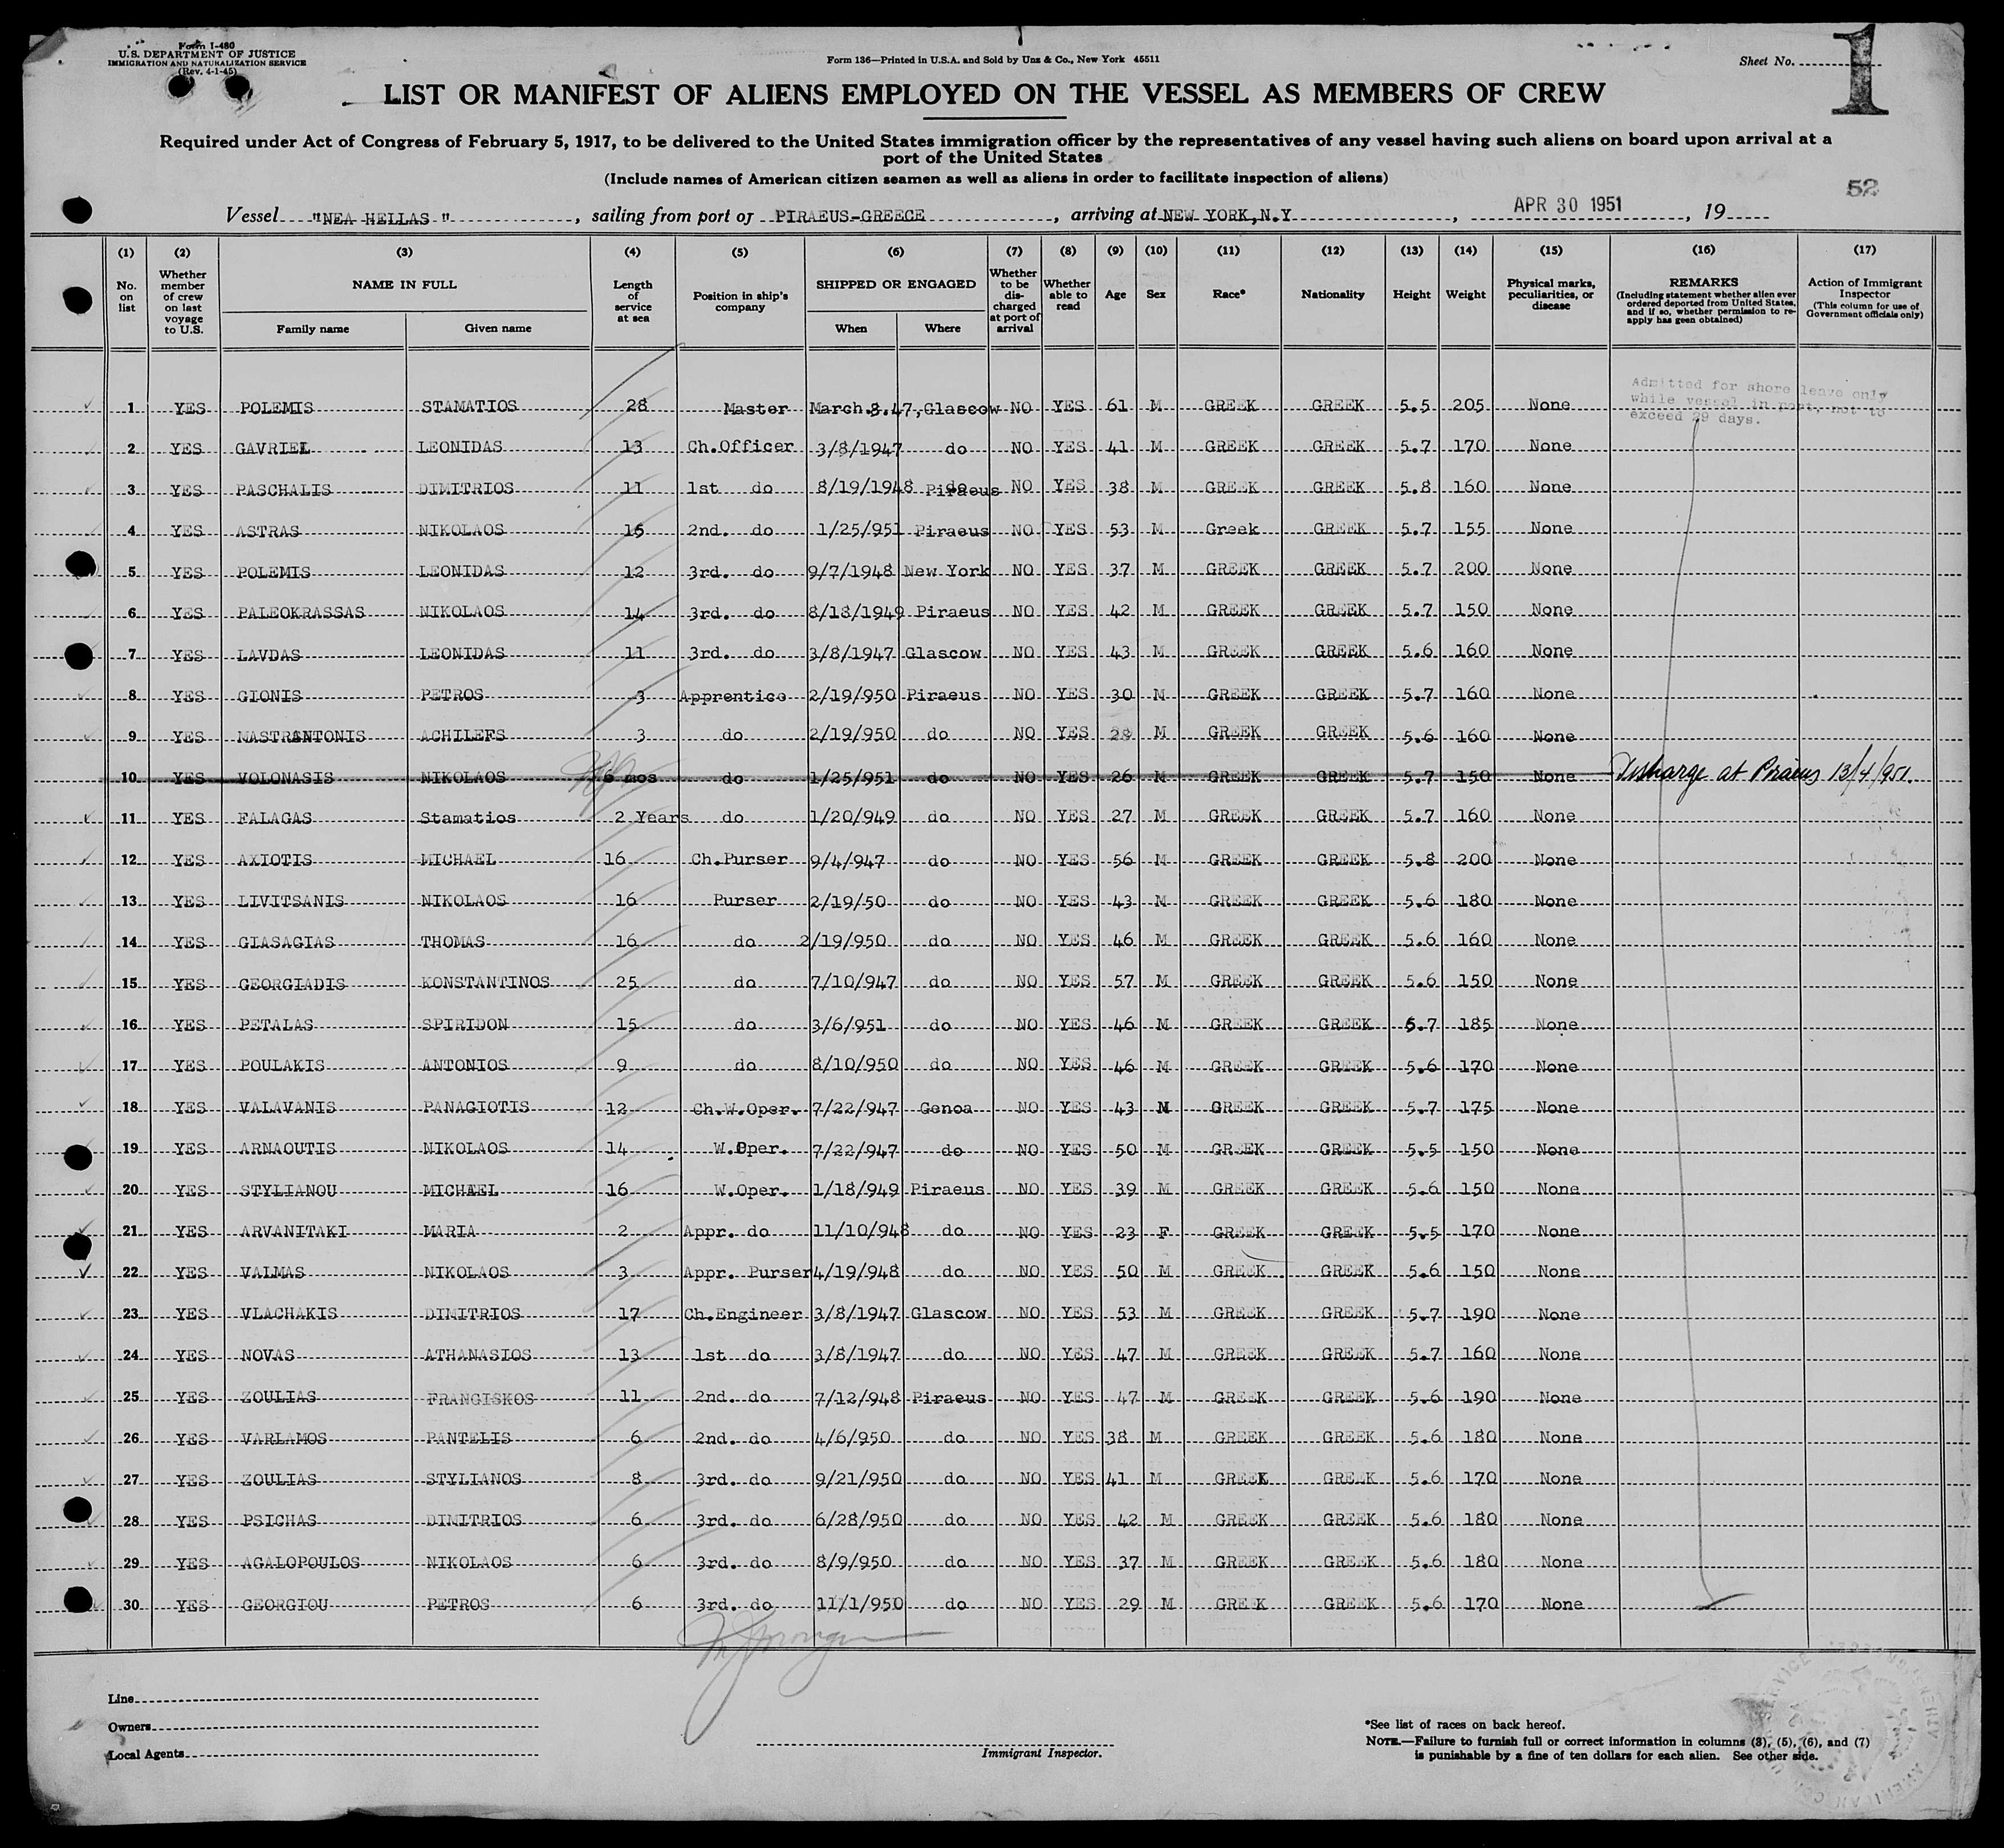 Form I-480
U.S. DEPARTMENT OF JUSTICE
IMMIGRATION AND NATURALIZATION SERVICE
(Rev. 4-1-45)
Form 136—Printed in U.S.A. and Sold by Unz & Co., New York 45511
Sheet No. 1
LIST OR MANIFEST OF ALIENS EMPLOYED ON THE VESSEL AS MEMBERS OF CREW
Required under Act of Congress of February 5, 1917, to be delivered to the United States immigration officer by the representatives of any vessel having such aliens on board upon arrival at a
port of the United States
(Include names of American citizen seamen as well as aliens in order to facilitate inspection of aliens)
52
Vessel "NEA HELLAS", sailing from port of PIRAEUS-GREECE, arriving at NEW YORK,N.Y, APR 30 1951, 19
(1) No. on list
(2) Whether member of crew on last voyage to U.S.
(3) NAME IN FULL Family name Given name
(4) Length of service at sea
(5) Position in ship's company
(6) SHIPPED OR ENGAGED When Where
(7) Whether to be discharged at port of arrival
(8) Whether able to read
(9) Age
(10) Sex
(11) Race*
(12) Nationality
(13) Height
(14) Weight
(15) Physical marks, peculiarities, or disease
(16) REMARKS (Including statement whether alien ever ordered deported from United States, and if so, whether permission to re-apply has geen obtained)
(17) Action of Immigrant Inspector (This column for use of Government officials only)
Admitted for shore leave only
while vessel in port, not to
exceed 29 days.
1 YES POLEMIS STAMATIOS 28 Master March.8.47, Glascow NO YES 61 M GREEK GREEK 5.5 205 None
2 YES GAVRIEL LEONIDAS 13 Ch.Officer 3/8/1947 do NO YES 41 M GREEK GREEK 5.7 170 None
3 YES PASCHALIS DIMITRIOS 11 1st do 8/19/1948 Piraeus NO YES 38 M GREEK GREEK 5.8 160 None
4 YES ASTRAS NIKOLAOS 15 2nd. do 1/25/951 Piraeus NO YES 53 M Greek GREEK 5.7 155 None
5 YES POLEMIS LEONIDAS 12 3rd. do 9/7/1948 New York NO YES 37 M GREEK GREEK 5.7 200 None
6 YES PALEOKRASSAS NIKOLAOS 14 3rd. do 8/18/1949 Piraeus NO YES 42 M GREEK GREEK 5.7 150 None
7 YES LAVDAS LEONIDAS 11 3rd. do 3/8/1947 Glascow NO YES 43 M GREEK GREEK 5.6 160 None
8 YES GIONIS PETROS 3 Apprentice 2/19/950 Piraeus NO YES 30 M GREEK GREEK 5.7 160 None
9 YES MASTRANTONIS ACHILEFS 3 do 2/19/950 do NO YES 28 M GREEK GREEK 5.6 160 None
10 YES VOLONASIS NIKOLAOS 6 mos do 1/25/951 do NO YES 26 M GREEK GREEK 5.7 150 None Discharge at Piraeus 13/4/951.
11 YES FALAGAS Stamatios 2 Years do 1/20/949 do NO YES 27 M GREEK GREEK 5.7 160 None
12 YES AXIOTIS MICHAEL 16 Ch.Purser 9/4/947 do NO YES 56 M GREEK GREEK 5.8 200 None
13 YES LIVITSANIS NIKOLAOS 16 Purser 2/19/50 do NO YES 43 M GREEK GREEK 5.6 180 None
14 YES GIASAGIAS THOMAS 16 do 2/19/950 do NO YES 46 M GREEK GREEK 5.6 160 None
15 YES GEORGIADIS KONSTANTINOS 25 do 7/10/947 do NO YES 57 M GREEK GREEK 5.6 150 None
16 YES PETALAS SPIRIDON 15 do 3/6/951 do NO YES 46 M GREEK GREEK 5.7 185 None
17 YES POULAKIS ANTONIOS 9 do 8/10/950 do NO YES 46 M GREEK GREEK 5.6 170 None
18 YES VALAVANIS PANAGIOTIS 12 Ch.W.Oper. 7/22/947 Genoa NO YES 43 M GREEK GREEK 5.7 175 None
19 YES ARNAOUTIS NIKOLAOS 14 W.Oper. 7/22/947 do NO YES 50 M GREEK GREEK 5.5 150 None
20 YES STYLIANOU MICHAEL 16 W.Oper. 1/18/949 Piraeus NO YES 39 M GREEK GREEK 5.6 150 None
21 YES ARVANITAKI MARIA 2 Appr. do 11/10/948 do NO YES 23 F GREEK GREEK 5.5 170 None
22 YES VALMAS NIKOLAOS 3 Appr. Purser 4/19/948 do NO YES 50 M GREEK GREEK 5.6 150 None
23 YES VLACHAKIS DIMITRIOS 17 Ch.Engineer 3/8/1947 Glascow NO YES 53 M GREEK GREEK 5.7 190 None
24 YES NOVAS ATHANASIOS 13 1st do 3/8/1947 do NO YES 47 M GREEK GREEK 5.7 160 None
25 YES ZOULIAS FRANGISKOS 11 2nd. do 7/12/948 Piraeus NO YES 47 M GREEK GREEK 5.6 190 None
26 YES VARLAMOS PANTELIS 6 2nd. do 4/6/950 do NO YES 38 M GREEK GREEK 5.6 180 None
27 YES ZOULIAS STYLIANOS 8 3rd. do 9/21/950 do NO YES 41 M GREEK GREEK 5.6 170 None
28 YES PSICHAS DIMITRIOS 6 3rd. do 6/28/950 do NO YES 42 M GREEK GREEK 5.6 180 None
29 YES AGALOPOULOS NIKOLAOS 6 3rd. do 8/9/950 do NO YES 37 M GREEK GREEK 5.6 180 None
30 YES GEORGIOU PETROS 6 3rd. do 11/1/950 do NO YES 29 M GREEK GREEK 5.6 170 None
Line
Owners
Local Agents
Immigrant Inspector.
*See list of races on back hereof.
NOTE.—Failure to furnish full or correct information in columns (3), (5), (6), and (7)
is punishable by a fine of ten dollars for each alien. See other side.